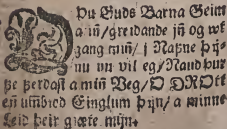 DU Guds Barna Geim
a in/greidande jñ og wt
gang miñ/ i Nafne Þij-
nu vil eg/ Naud þur
fte ferdast a miñ Veg/ O DROtt
eñ umbiod Einglum þijn/ a minne
Leid þeir giæte mijn.